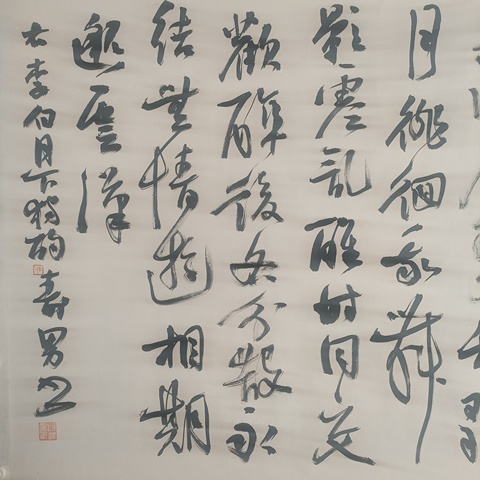 月徘徊我舞
影零乱醒时同交
歡醉後各分散永
结無情游相期
邈雲漢
右李白月下獨酌
壽男书